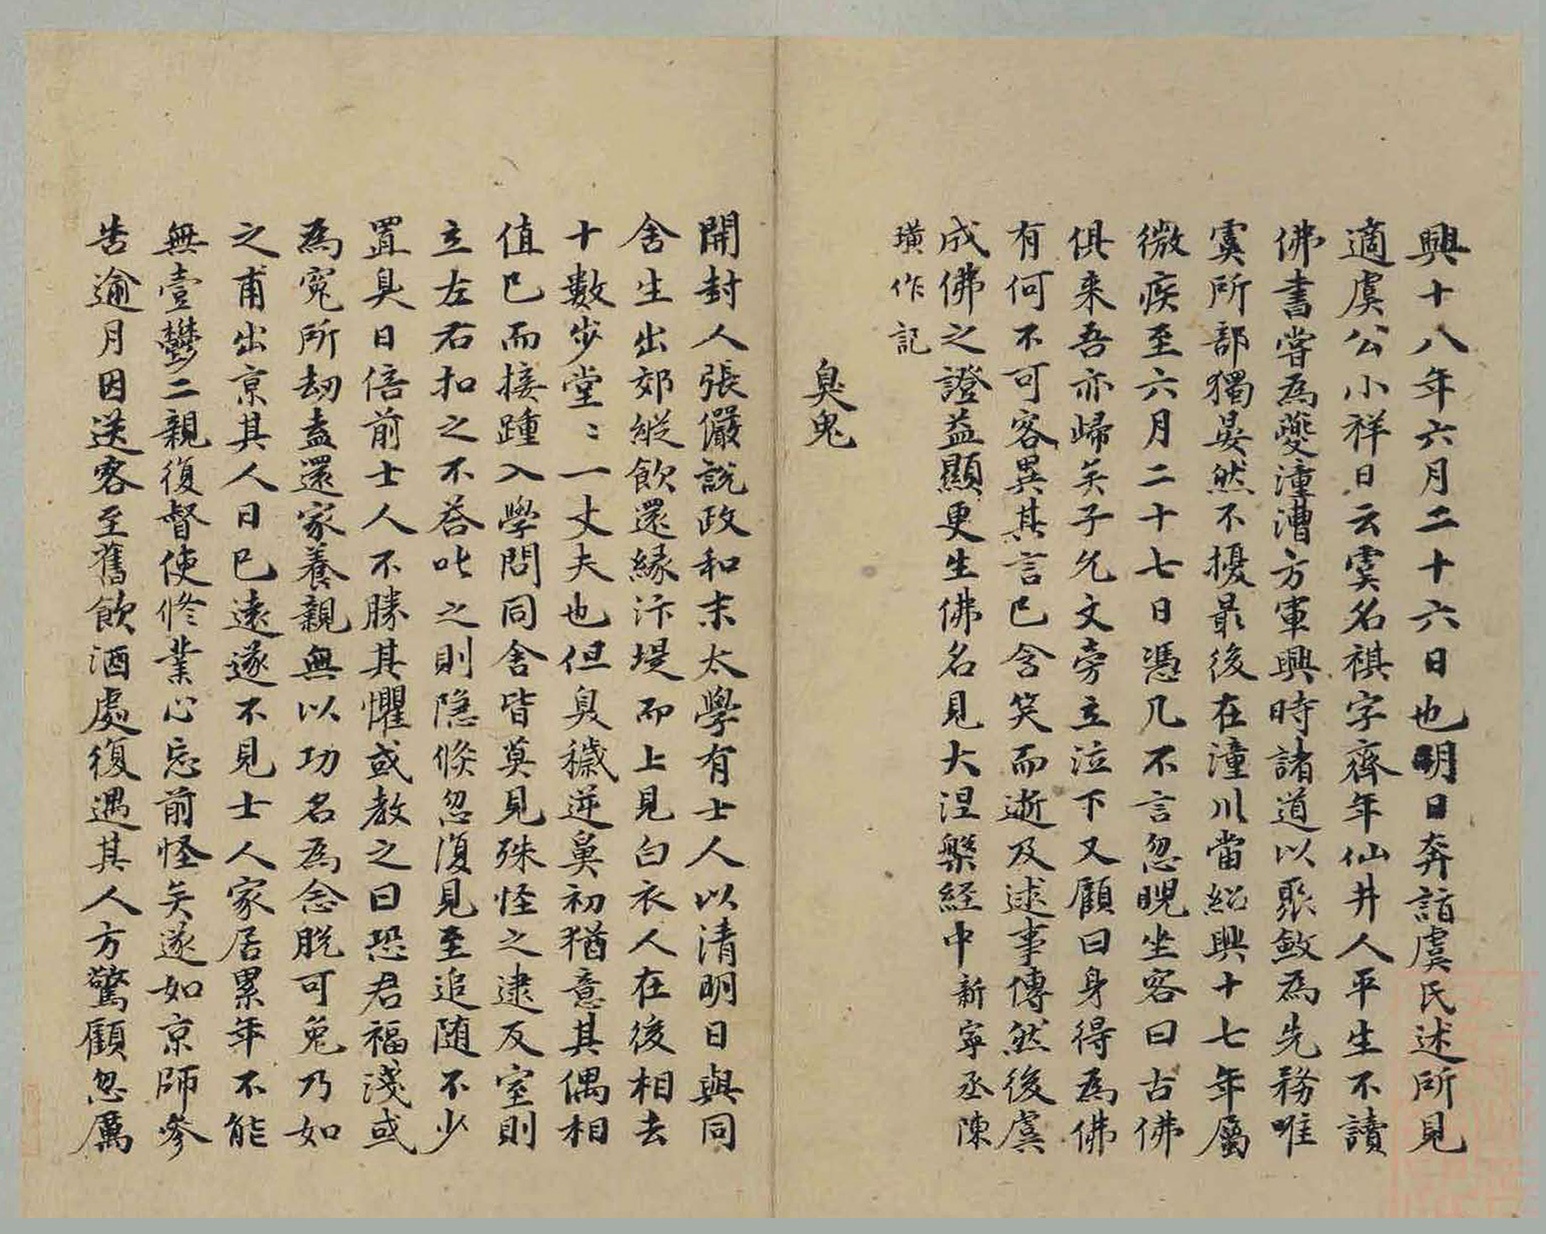 興十八年六月二十六日也明日奔詣虞氏述所見
適虞公小祥日云虞名祺字齊年仙井人平生不讀
佛書嘗為夔潼漕方軍興時諸道以聚斂為先務唯
虞所部獨晏然不擾最後在潼川當紹興十七年屬
微疾至六月二十七日憑几不言忽睨坐客曰古佛
俱来吾亦歸矣子允文旁立泣下又顧曰身得為佛
有何不可客異其言已含笑而逝及逑事傳然後虞
成佛之證益顯更生佛名見大涅槃経中新寜丞陳
璜作記
臭鬼
開封人張儼說政和末太學有士人以清明日與同
舍生出郊縱飲還縁汴堤而上見白衣人在後相去
十數步堂〻一丈夫也但臭穢逆鼻初猶意其偶相
值已而接踵入學問同舍皆莫見殊怪之逮反室則
立左右扣之不荅叱之則隐倐忽復見至追随不少
置臭日倍前士人不勝其懼或教之曰恐君福淺或
為寃所刼盍還家養親無以功名為念脫可免乃如
之甫出京其人日已遠遂不見士人家居累年不能
無壹鬱二親復督使修業心忘前怪矣遂如京師叅
告逾月因送客至舊飲酒處復遇其人方驚顧忽厲